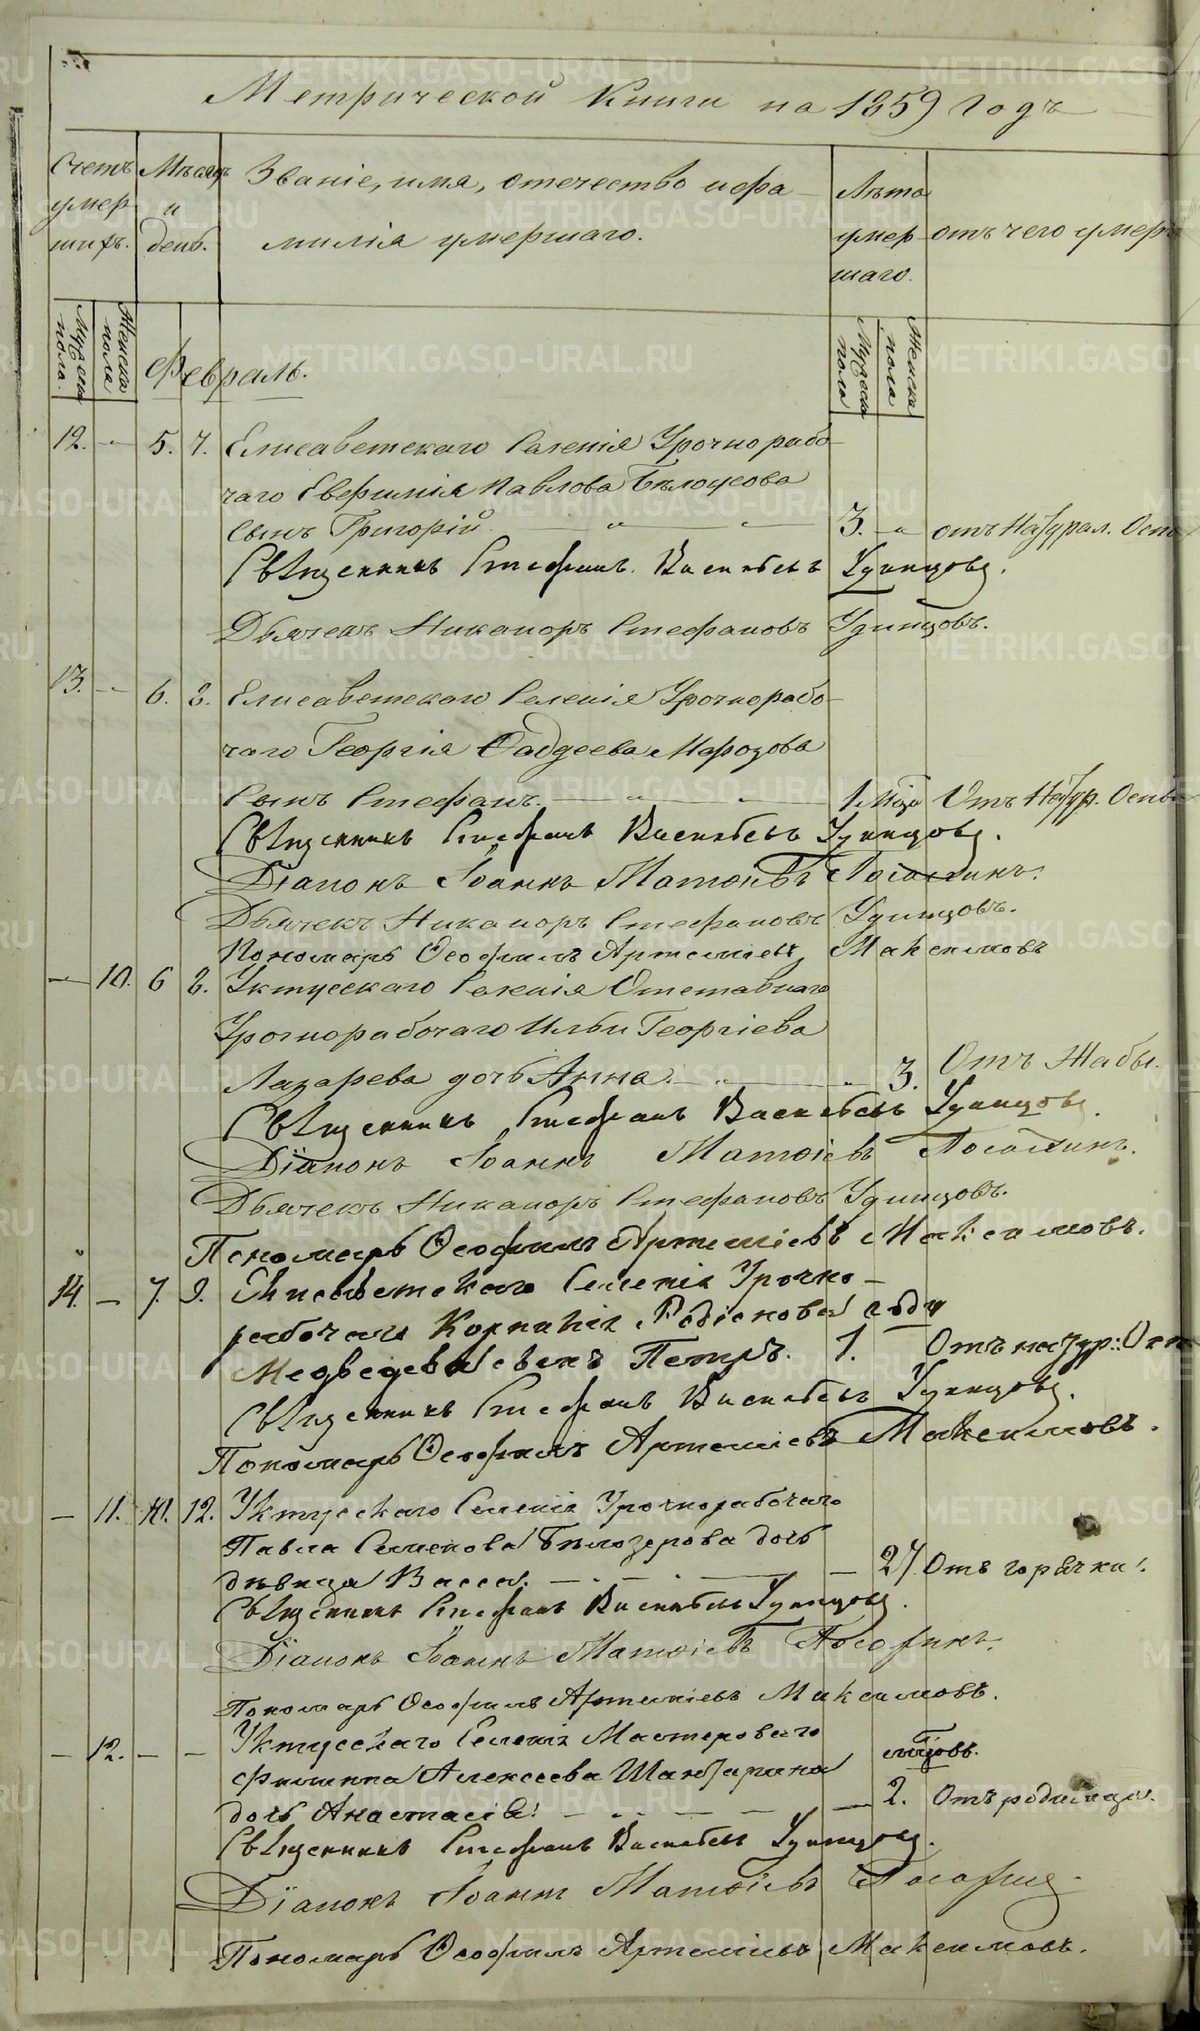 Метрической Книги на 1859 Годъ
Счетъ умер шихъ. Мѣсяцъ и день. Званіе, имя, отечество и фа милія умершаго. Лѣта умер шаго. отъ чего умеръ
Мужеска пола. Женска пола Мужеска пола Женска пола
Февраль.
12. — 5. 7. Елисаветскаго Селенія Урочнорабо
чаго Евфимія Павлова Бѣлоусова
Сынъ Григорій — „ — „ — 3. „ отъ Натурал. Оспы
Священникъ Стефанъ Васильевъ Удинцовъ.
Дьячекъ Никаноръ Стефановъ Удинцовъ.
13. — 6. 8. Елисаветскаго Селенія Урочнорабо
чаго Георгія Фаддеева Марозова
Сынъ Стефанъ. — „ — „ — 1 мѣся Отъ Натур. Оспы
Священникъ Стефанъ Васильевъ Удинцовъ.
Діаконъ Іоаннъ Матѳіевъ
Дьячекъ Никаноръ Стефановъ Удинцовъ.
Пономарь Ѳеофилъ Артеміевъ Максимовъ
— 10. 6 8. Уктусскаго Селенія Отставнаго
Урочнорабочаго Ильи Георгіева
Лазарева дочь Анна. — „ 3. Отъ Жабы.
Священникъ Стефанъ Васильевъ Удинцовъ.
Діаконъ Іоаннъ Матѳіевъ
Дьячекъ Никаноръ Стефановъ Удинцовъ.
Пономарь Ѳеофилъ Артеміевъ Максимовъ.
14. — 7. 9. Елисаветскаго Селенія Урочно-
рабочаго Корнилія Родіонова
Медведева сынъ Петръ. 1. Отъ натур: Осп
Священникъ Стефанъ Васильевъ Удинцовъ.
Пономарь Ѳеофилъ Артеміевъ Максимовъ.
— 11. 10. 12. Уктусскаго Селенія Урочнорабочаго
Павла Семенова Бѣлозерова дочь
дѣвица Васса. — — — 27 Отъ горячки.
Священникъ Стефанъ Васильевъ Удинцовъ.
Діаконъ Іоаннъ Матѳіевъ
Пономарь Ѳеофилъ Артеміевъ Максимовъ.
— 12. — — Уктусскаго Селенія Мастероваго
Филиппа Алексеева мѣсяцовъ.
дочь Анастасія. — — — 2. Отъ родимца.
Священникъ Стефанъ Васильевъ Удинцовъ.
Діаконъ Іоаннъ Матѳіевъ
Пономарь Ѳеофилъ Артеміевъ Максимовъ.
METRIKI.GASO-URAL.RU